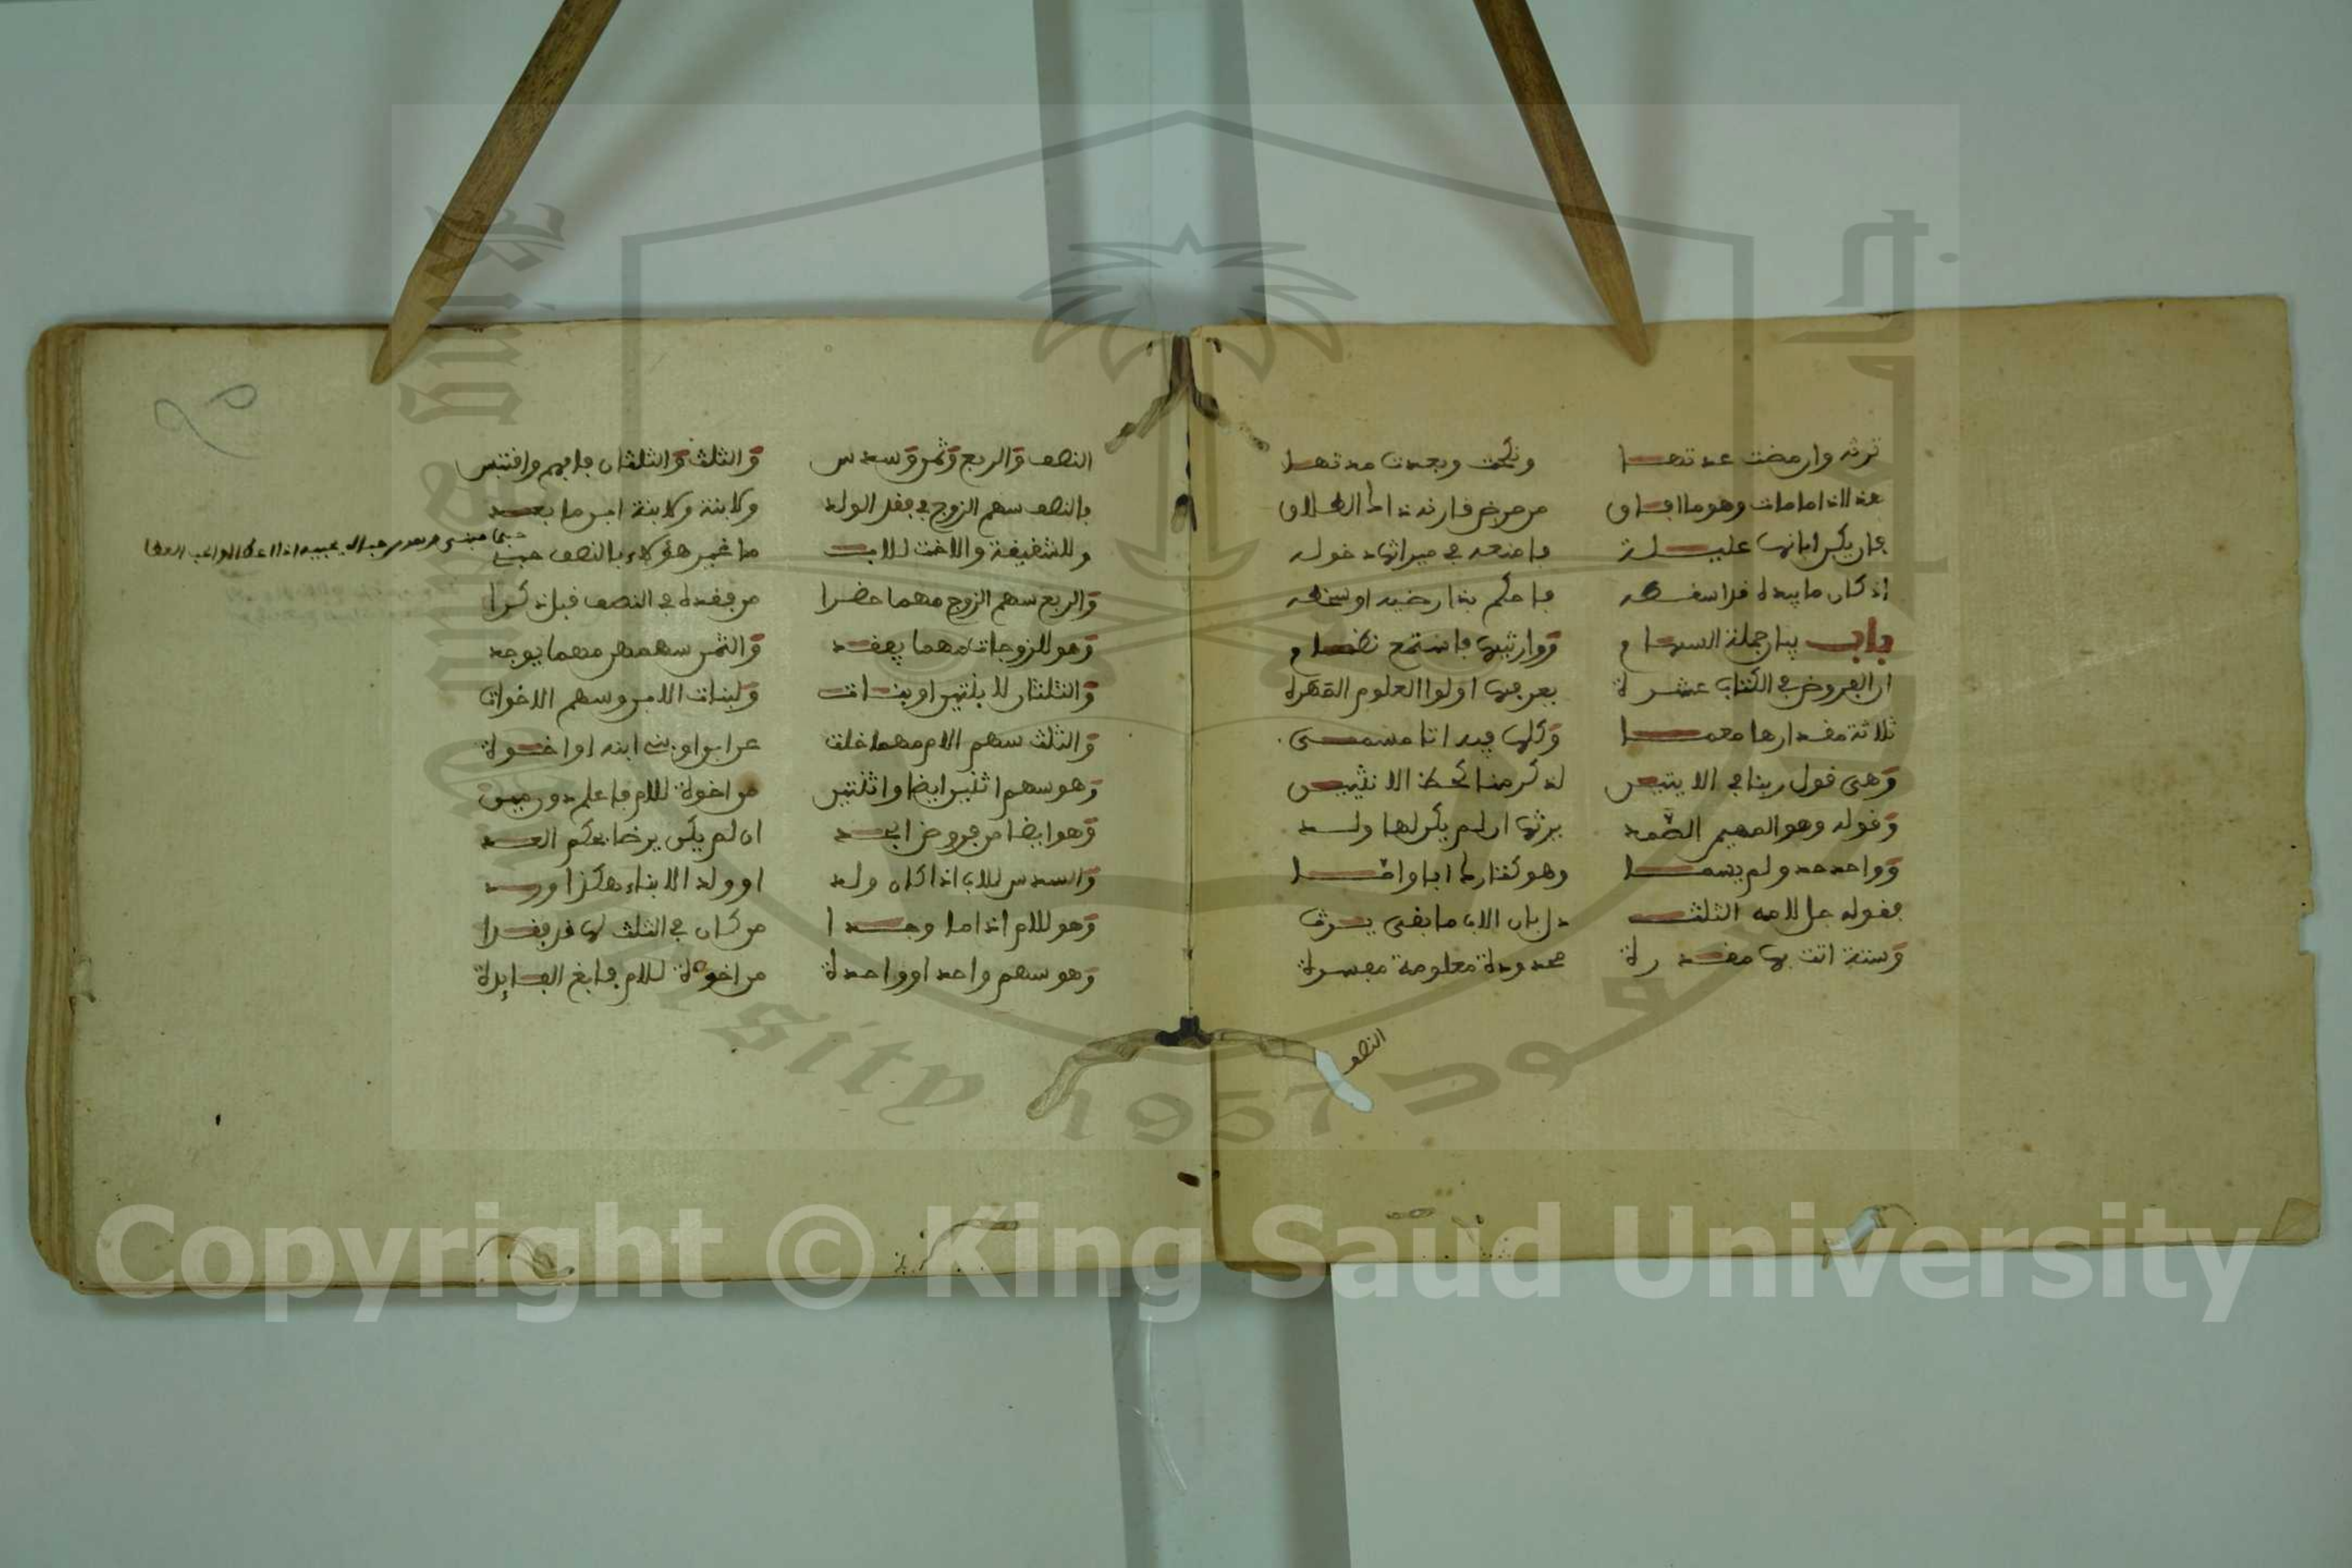 ترثه وان مضت عدتها ونكحت وبعدت مدتها
هذا اذا ما مات وهو ما افاق من مرض قارنه ذا الطلاق
فان يكن ابانها عليلة فامنعه في ميراثها دخوله
اذ كان ما بيده قد اسقطه فاحكم بذا رضيه او سخطه
باب بيان جملة السهام ووارثيها فاستمع نظام
ان الفروض في الكتاب عشرة يعرفها اولوا العلوم المهرة
ثلاثة مقدارها معمى وكلها فيه اتا مسمى
وهي قول ربنا في الايتين لذكر منا كحظ الانثيين
وقوله وهو المهيمن الصمد يرثها ان لم يكن لها ولد
وواحد حد ولم يسما وهو لمن كان ابا واما
فقوله جل لامه الثلث دل بان الاب ما بقي يرث
وستة اتت بها مقدرة محدودة معلومة مفسرة
النصف
النصف والربع وثمن وسدس والثلث والثلثان فافهم واقتبس
فالنصف سهم الزوج في فقد الولد ولابنة ولابنة ابن ما بعد
وللشقيقة والاخت للاب ما غير هؤلاء بالنصف حبي
والربع سهم الزوج مهما حضرا من فقده في النصف قبل ذكرا
وهو للزوجات مهما يفقد والثمن سهمهن مهما يوجد
والثلثان لابنتين او بنات ولبنات الابن وسهم الاخوات
والثلث سهم الام مهما خلت عن ابن او بني ابنه او اخوة
وهو سهم اثنين ايضا واثنتين من اخوة للام فاعلم دون مين
وهو ايضا من فروض الجد ان لم يكن يرضا بحكم العد
والسدس للاب اذا كان ولد او ولد الابناء هكذا ورد
وهو للام اذا ما وجدا من كان في الثلث لها قد فقدا
وهو سهم واحد او واحدة من اخوة للام فابغ الفائدة